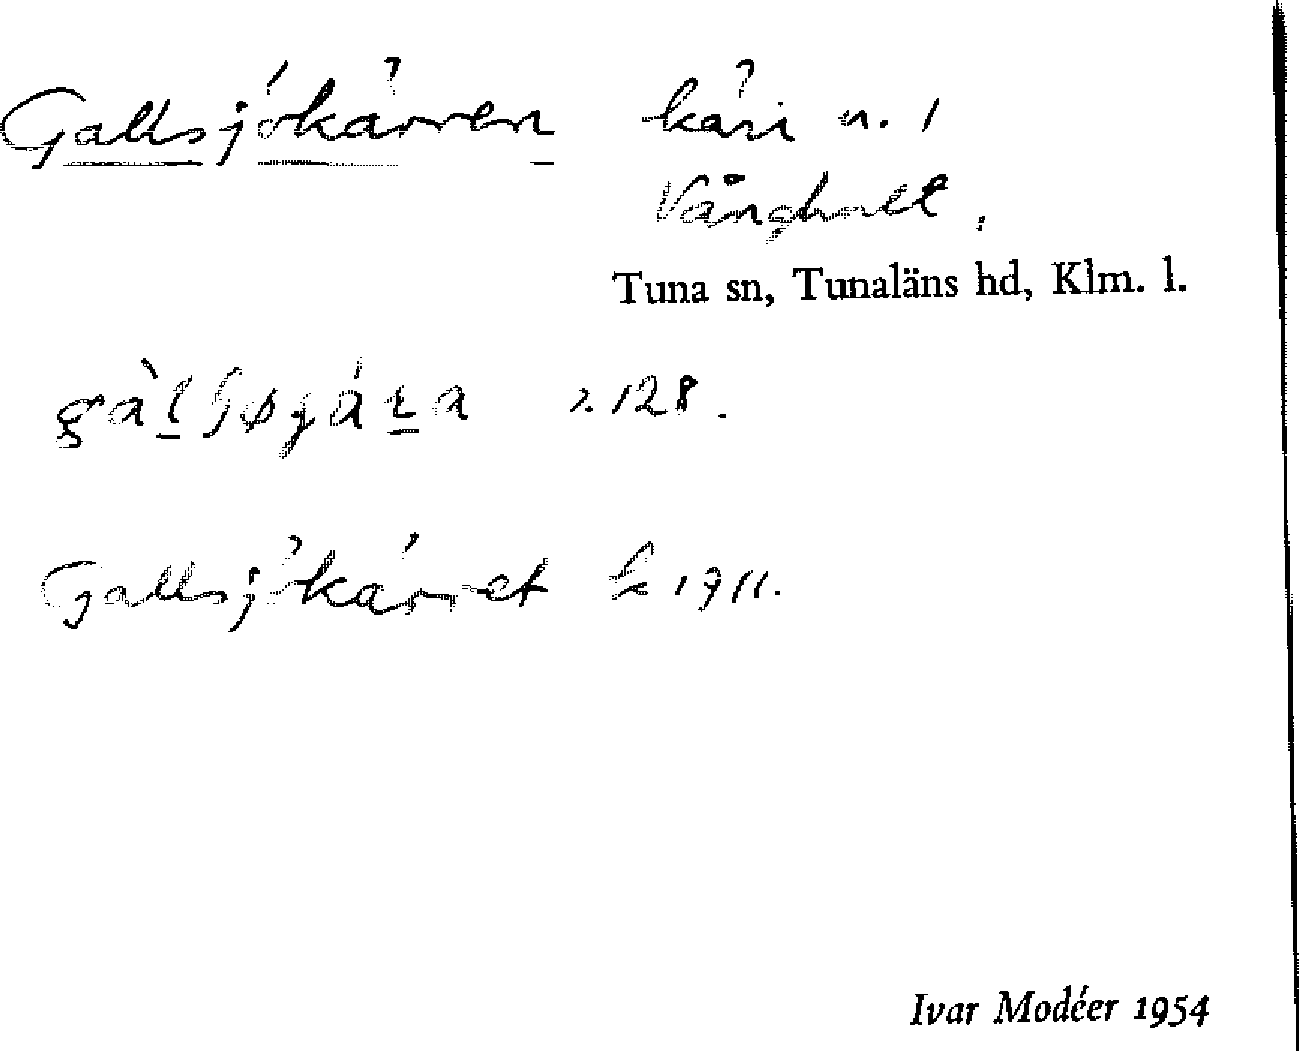 Gallsjökärren kärr n. 1
Vångholt.
Tuna sn, Tunaläns hd, Klm. l.
s. 128.
Gallsjökärret Lk 1911.
Ivar Modéer 1954